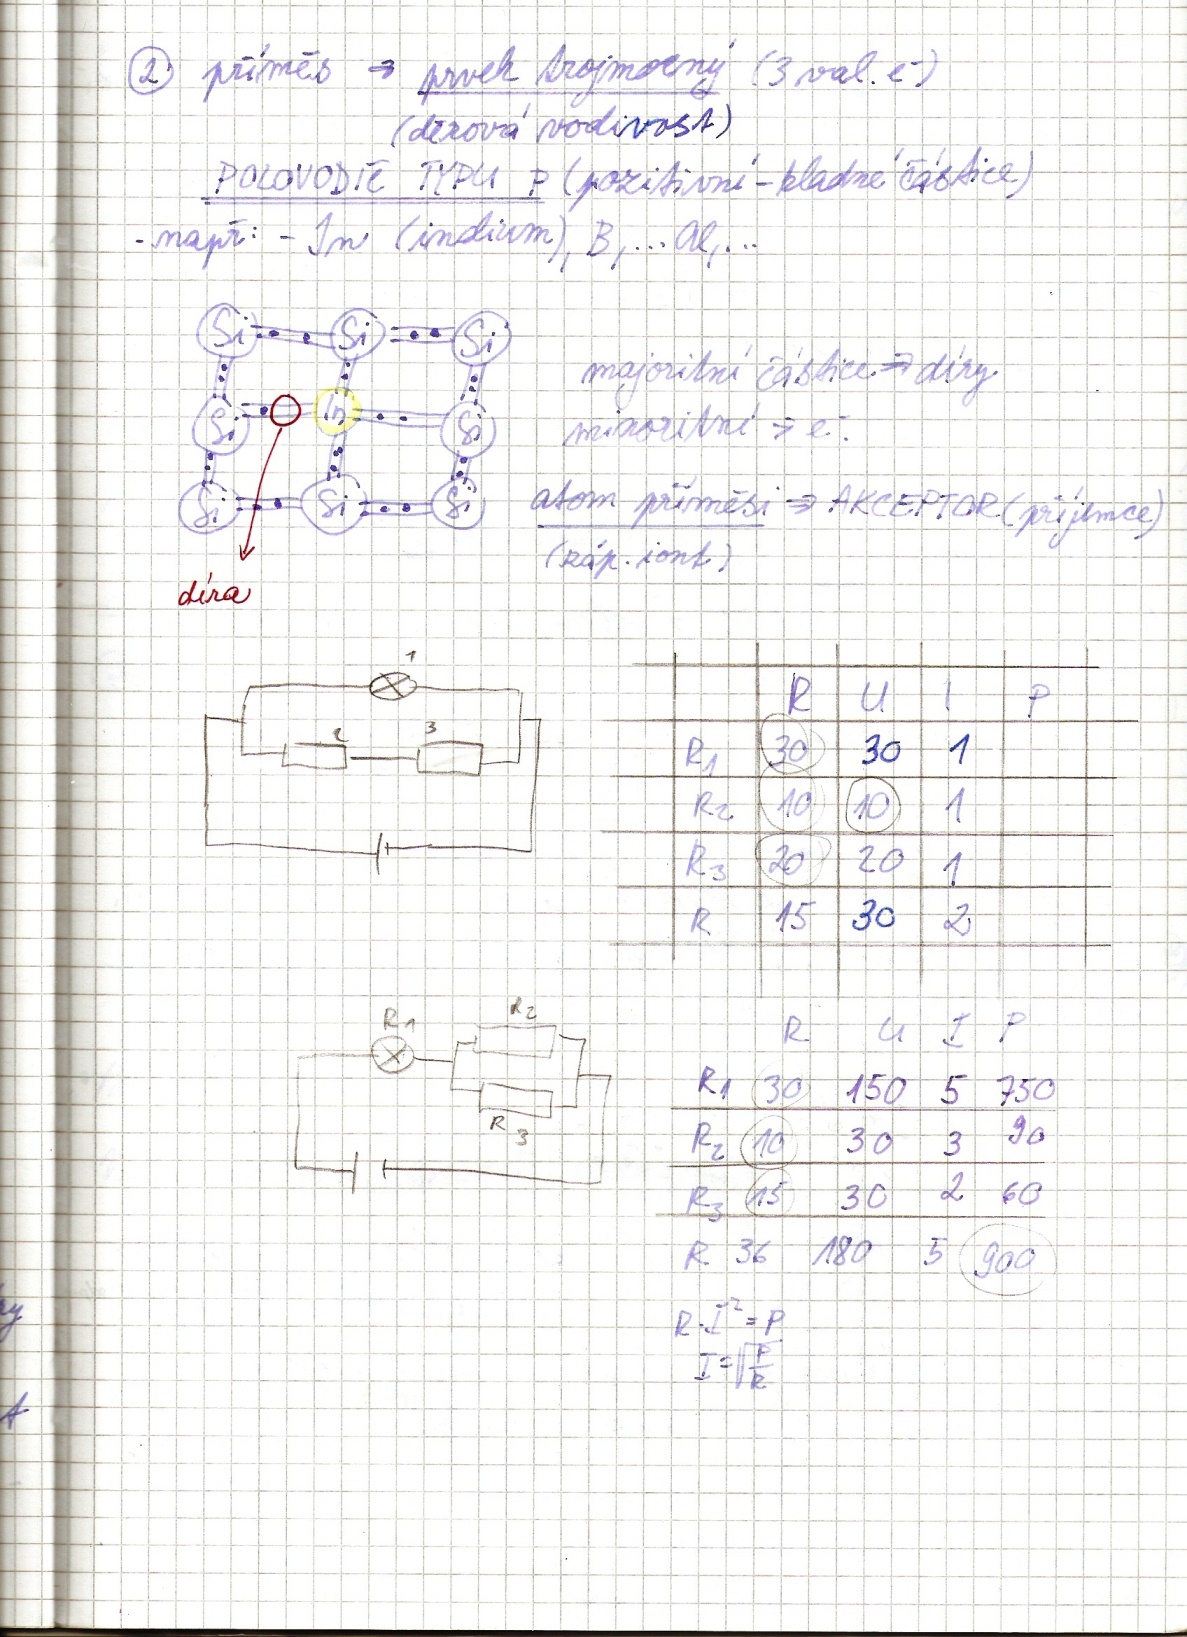 ② příměs ⇒ prvek trojmocný (3 val. e⁻)
(děrová vodivost)
POLOVODIČ TYPU P (pozitivní - kladné částice)
- např: - In (indium), B, ... Al, ...
Si Si Si
Si In Si
Si Si Si
díra
majoritní částice ⇒ díry
minoritní ⇒ e⁻.
atom příměsi ⇒ AKCEPTOR (příjemce)
(záp. iont)
1
2 3
R U I P
R1 30 30 1
R2 10 10 1
R3 20 20 1
R 15 30 2
R1 R2
R3
R U I P
R1 30 150 5 750
R2 10 30 3 90
R3 15 30 2 60
R 36 180 5 900
R · I² = P
I = √P/R